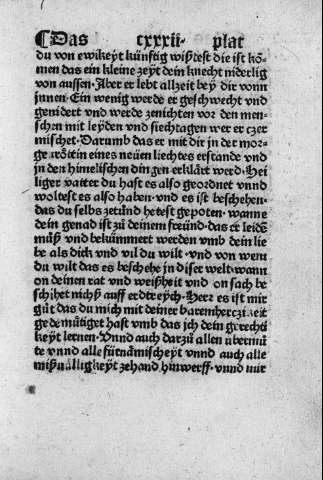 ¶ Das cxxxii plat
du von ewikeyt künftig wißtest die ist kö-
men das ein kleine zeyt dein knecht niderlig
von aussen. Aber er lebt allzeit bey dir vonn
jnnen. Ein wenig werde er geschwecht vnd
genidert vnd werde zenichten vor den men-
schen mit leyden vnd siechtagen wer er czer
mischet. Darumb das er mit dir in der mor-
ge rötin eines neüen liechtes erstande vnd
in den himelischen dingen erklärt werd. Hei
liger vatter du hast es also geordnet vnnd
woltest es also haben. vnd es ist beschehen.
das du selbs zetůnd hetest gepoten. wanne
dein genad ist zů deinem freünd. das er leide
müß vnd bekümmert werden vmb dein lie
be als dick vnd vil du wilt. vnd von wem
du wilt das es beschehe jn diser welt. wann
on deinen rat vnd weißheit vnd on sach be
schihet nichß auff erdtreych. Herr es ist mir
gůt das du mich mit deiner barmherczikeit
gedemütiget hast vmb das jch dein gerechti
keyt lernen. Vnnd auch darzů allen übermů
te vnnd alle fürnämischeyt vnnd auch alle
mißuälligkeyt zehand hinwerff. vnnd mir